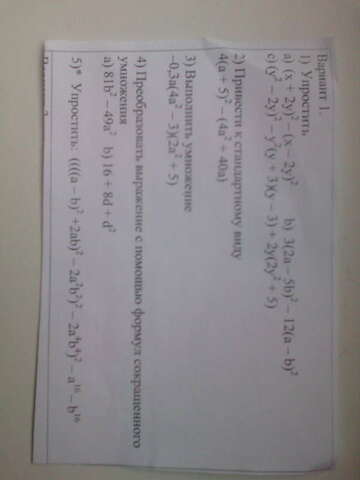 Вариант 1.
1) Упростить
a) (x + 2y)² – (x – 2y)² b) 3(2a – 5b)² – 12(a – b)²
c) (y² – 2y)² – y²(y + 3)(y – 3) + 2y(2y² + 5)
2) Привести к стандартному виду
4(a + 5)² – (4a² + 40a)
3) Выполнить умножение
–0,3a(4a² – 3)(2a² + 5)
4) Преобразовать выражение с помощью формул сокращенного
умножения
a) 81b² – 49a² b) 16 + 8d + d²
5)* Упростить: ((((a – b)² +2ab)² – 2a²b²)² – 2a⁴b⁴)² – a¹⁶ – b¹⁶